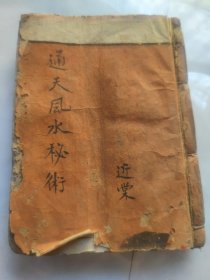 通天風水秘術
近棠